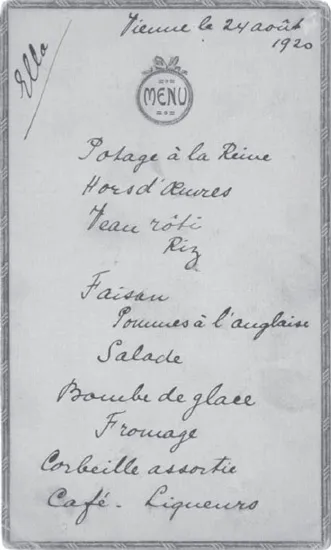 Vienne le 24 août
1920
Ella
MENU
Potage à la Reine
Hors d'Œuvres
Veau rôti
Riz
Faisan
Pommes à l'anglaise
Salade
Bombe de glace
Fromage
Corbeille assortie
Café - Liqueurs